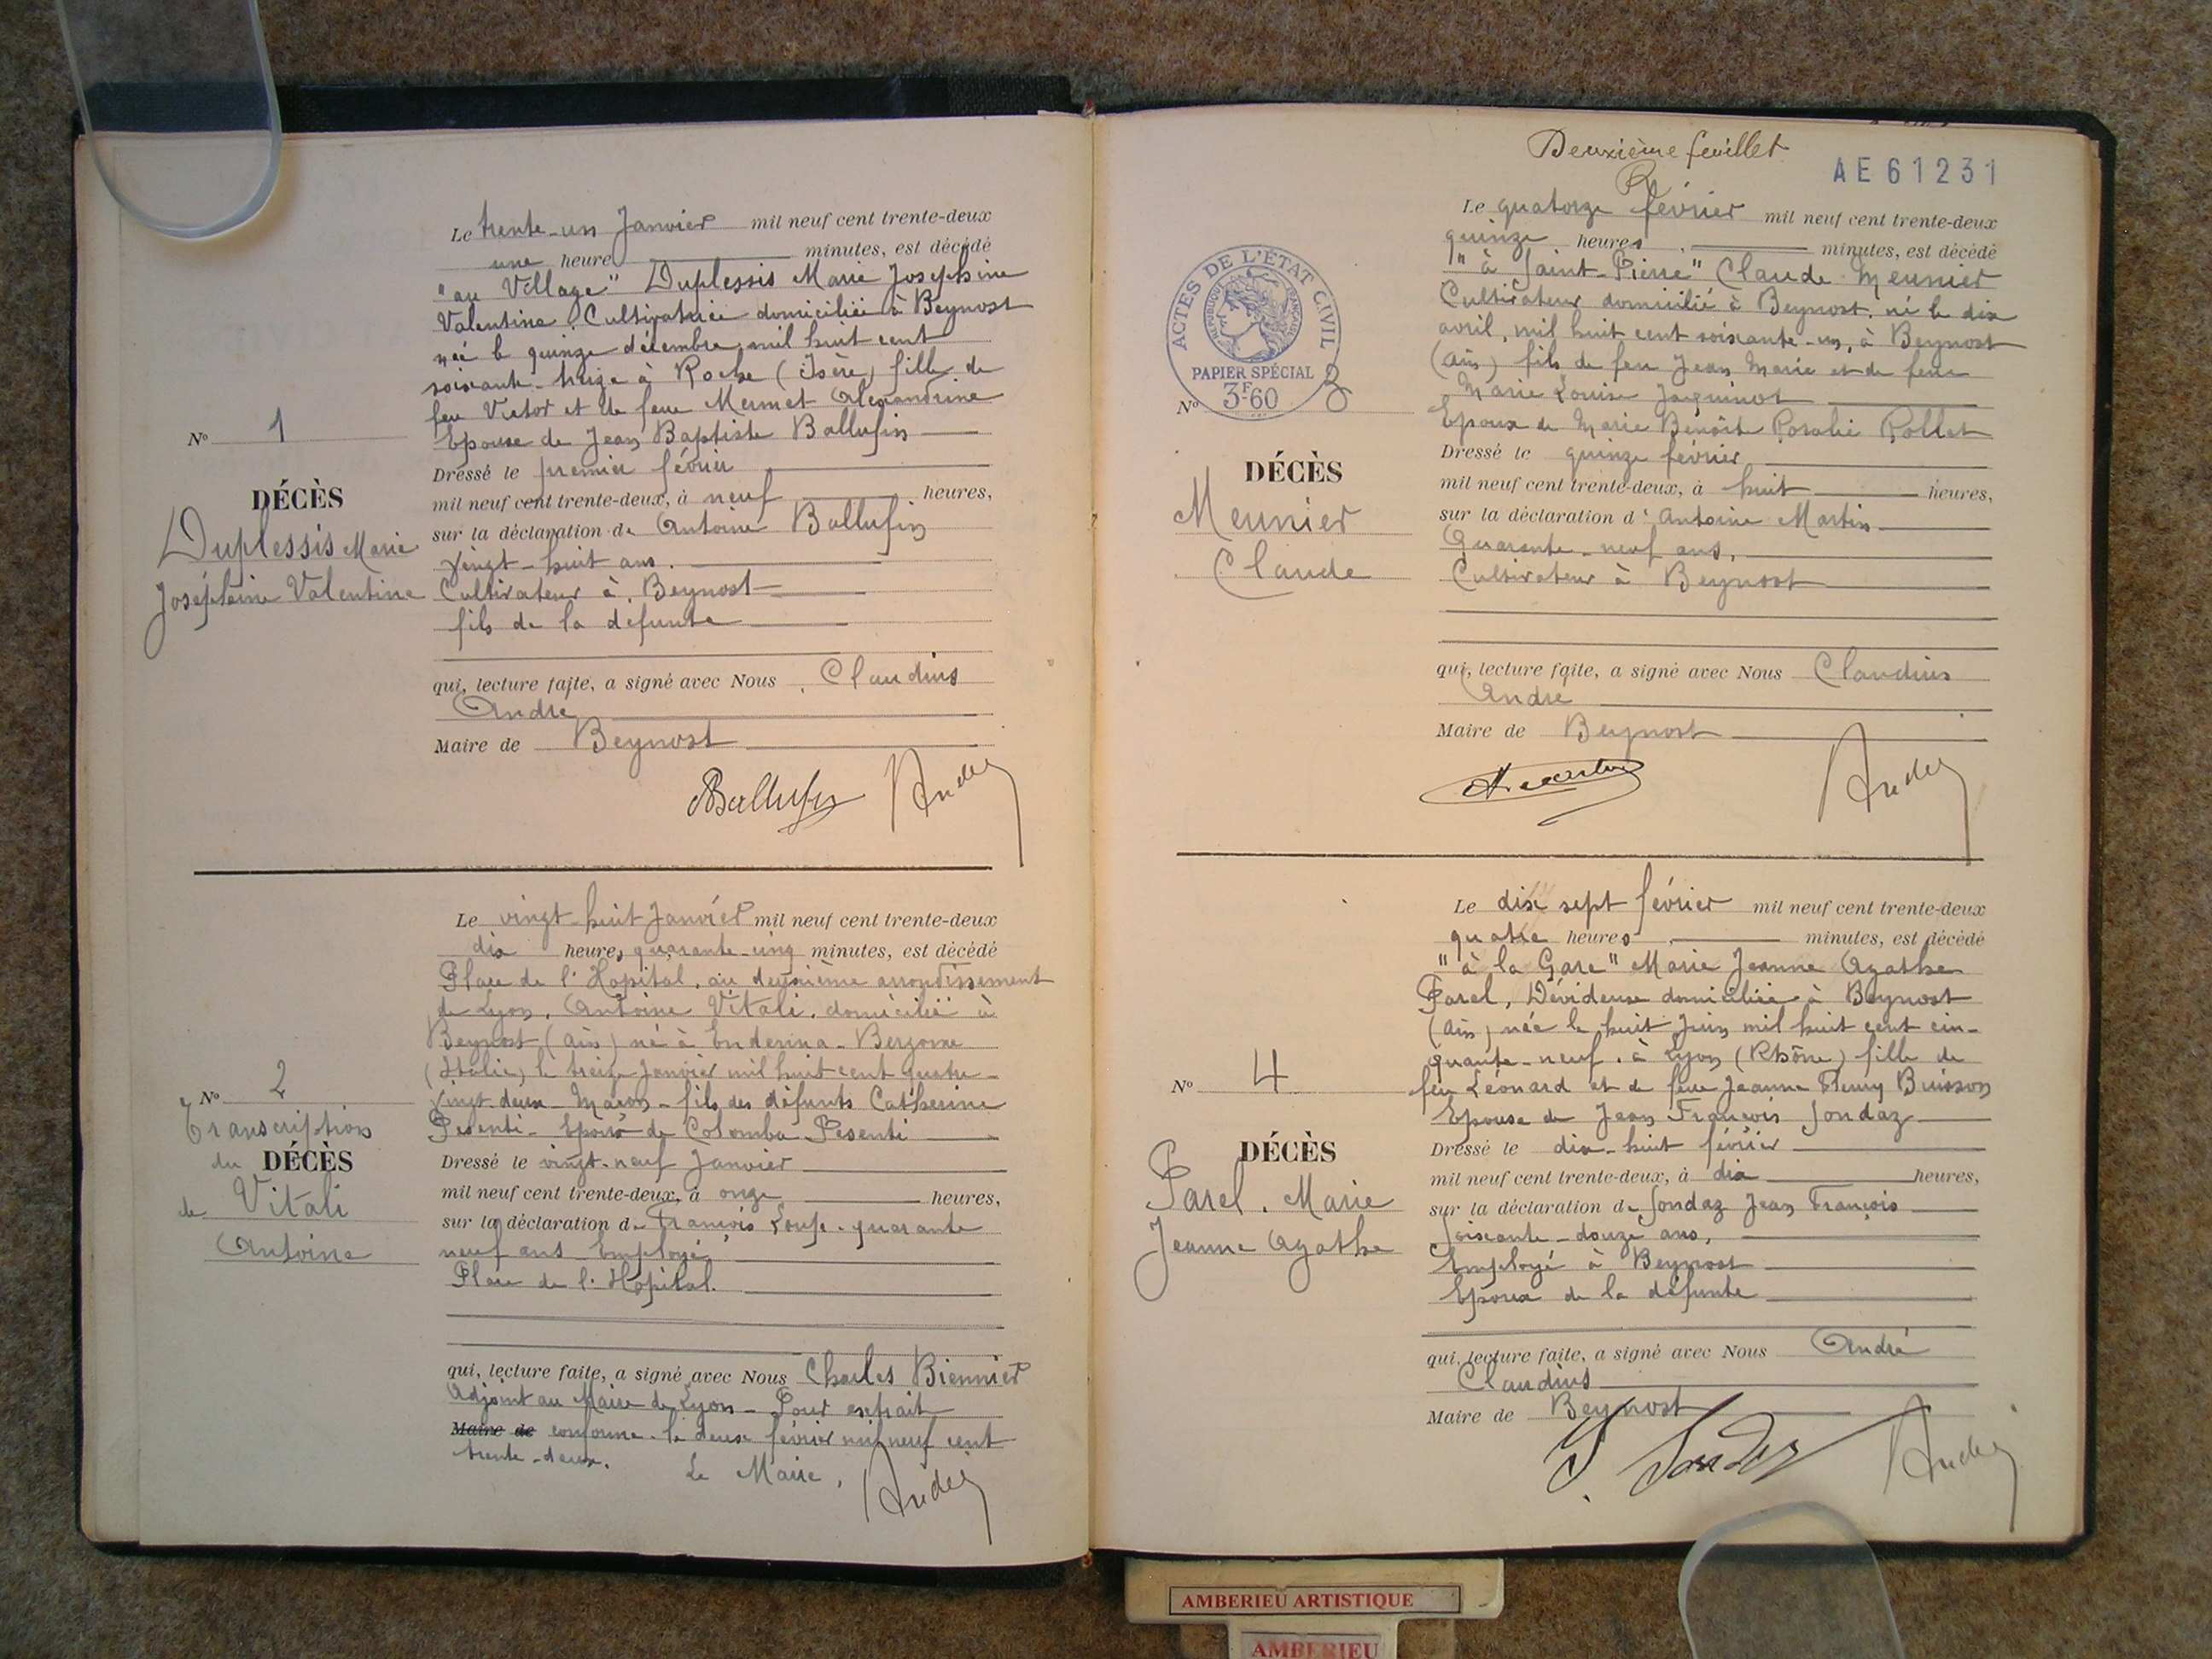 Le trente-un Janvier mil neuf cent trente-deux
une heure minutes, est décédé
"au Village" Duplessis Marie Josephine
Valentine. Cultivatrice domiciliée à Beynost
née le quinze décembre mil huit cent
soixante-treize à Roche (Isère) fille de
feu Victor et de feue Mermet Alexandrine
Epouse de Jean Baptiste Ballufin
Dressé le premier février
mil neuf cent trente-deux, à neuf heures,
sur la déclaration de Antoine Ballufin
vingt-huit ans.
Cultivateur à Beynost
fils de la défunte
qui, lecture faite, a signé avec Nous, Claudius
André
Maire de Beynost
Ballufin André
N° 1
DÉCÈS
Duplessis Marie
Joséphine Valentine
Le vingt huit Janvier mil neuf cent trente-deux
dix heures quarante cinq minutes, est décédé
Place de l'Hopital, au deuxième arrondissement
de Lyon, Antoine Vitali, domicilié à
Beynost (Ain) né à
(Italie) le treize Janvier mil huit cent quatre-
vingt-deux - Maçon - fils des défunts Catherine
Pesenti - Epoux de Colomba Pesenti
Dressé le vingt-neuf Janvier
mil neuf cent trente-deux, à onze heures,
sur la déclaration de François quarante
neuf ans Employé
Place de l'Hopital.
qui, lecture faite, a signé avec Nous Charles Biennier
Adjoint au Maire de Lyon - Pour extrait
Maire de conforme le deux février mil neuf cent
trente-deux. Le Maire, André
N° 2
Transcription
du DÉCÈS
de Vitali
Antoine
Deuxième feuillet
AE61231
Le quatorze février mil neuf cent trente-deux
quinze heures, minutes, est décédé
"à Saint-Pierre" Claude Meunier
Cultivateur domicilié à Beynost. né le dix
avril, mil huit cent soixante-un, à Beynost
(Ain) fils de feu Jean Marie et de feue
Marie Louise Jacquinot
Epoux de Marie Benôite Rosalie Rollet
Dressé le quinze février
mil neuf cent trente-deux, à huit heures,
sur la déclaration d'Antoine Martin
Quarante-neuf ans,
Cultivateur à Beynost
qui, lecture faite, a signé avec Nous Claudius
André
Maire de Beynost
André
ACTES DE L'ÉTAT CIVIL
RÉPUBLIQUE FRANÇAISE
PAPIER SPÉCIAL
3F60
N° 3
DÉCÈS
Meunier
Claude
Le dix sept février mil neuf cent trente-deux
quatre heures, minutes, est décédé
"à la Gare" Marie Jeanne Agathe
Parel, Dévideuse domiciliée à Beynost
(Ain) née le huit Juin mil huit cent cin-
quante-neuf. à Lyon (Rhône) fille de
feu Léonard et de feue Jeanne Fleury Buisson
Epouse de Jean François Sondaz
Dressé le dix-huit février
mil neuf cent trente-deux, à dix heures,
sur la déclaration de Sondaz Jean François
Soixante-douze ans,
Employé à Beynost
Epoux de la défunte
qui, lecture faite, a signé avec Nous André
Claudius
Maire de Beynost
André
N° 4
DÉCÈS
Parel, Marie
Jeanne Agathe
AMBERIEU ARTISTIQUE
AMBERIEU